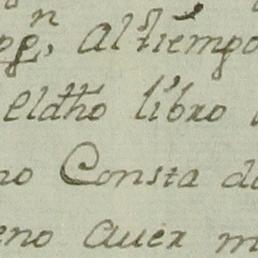 pp.n, Al tiempo
eldho libro
no Consta d
eno auer m